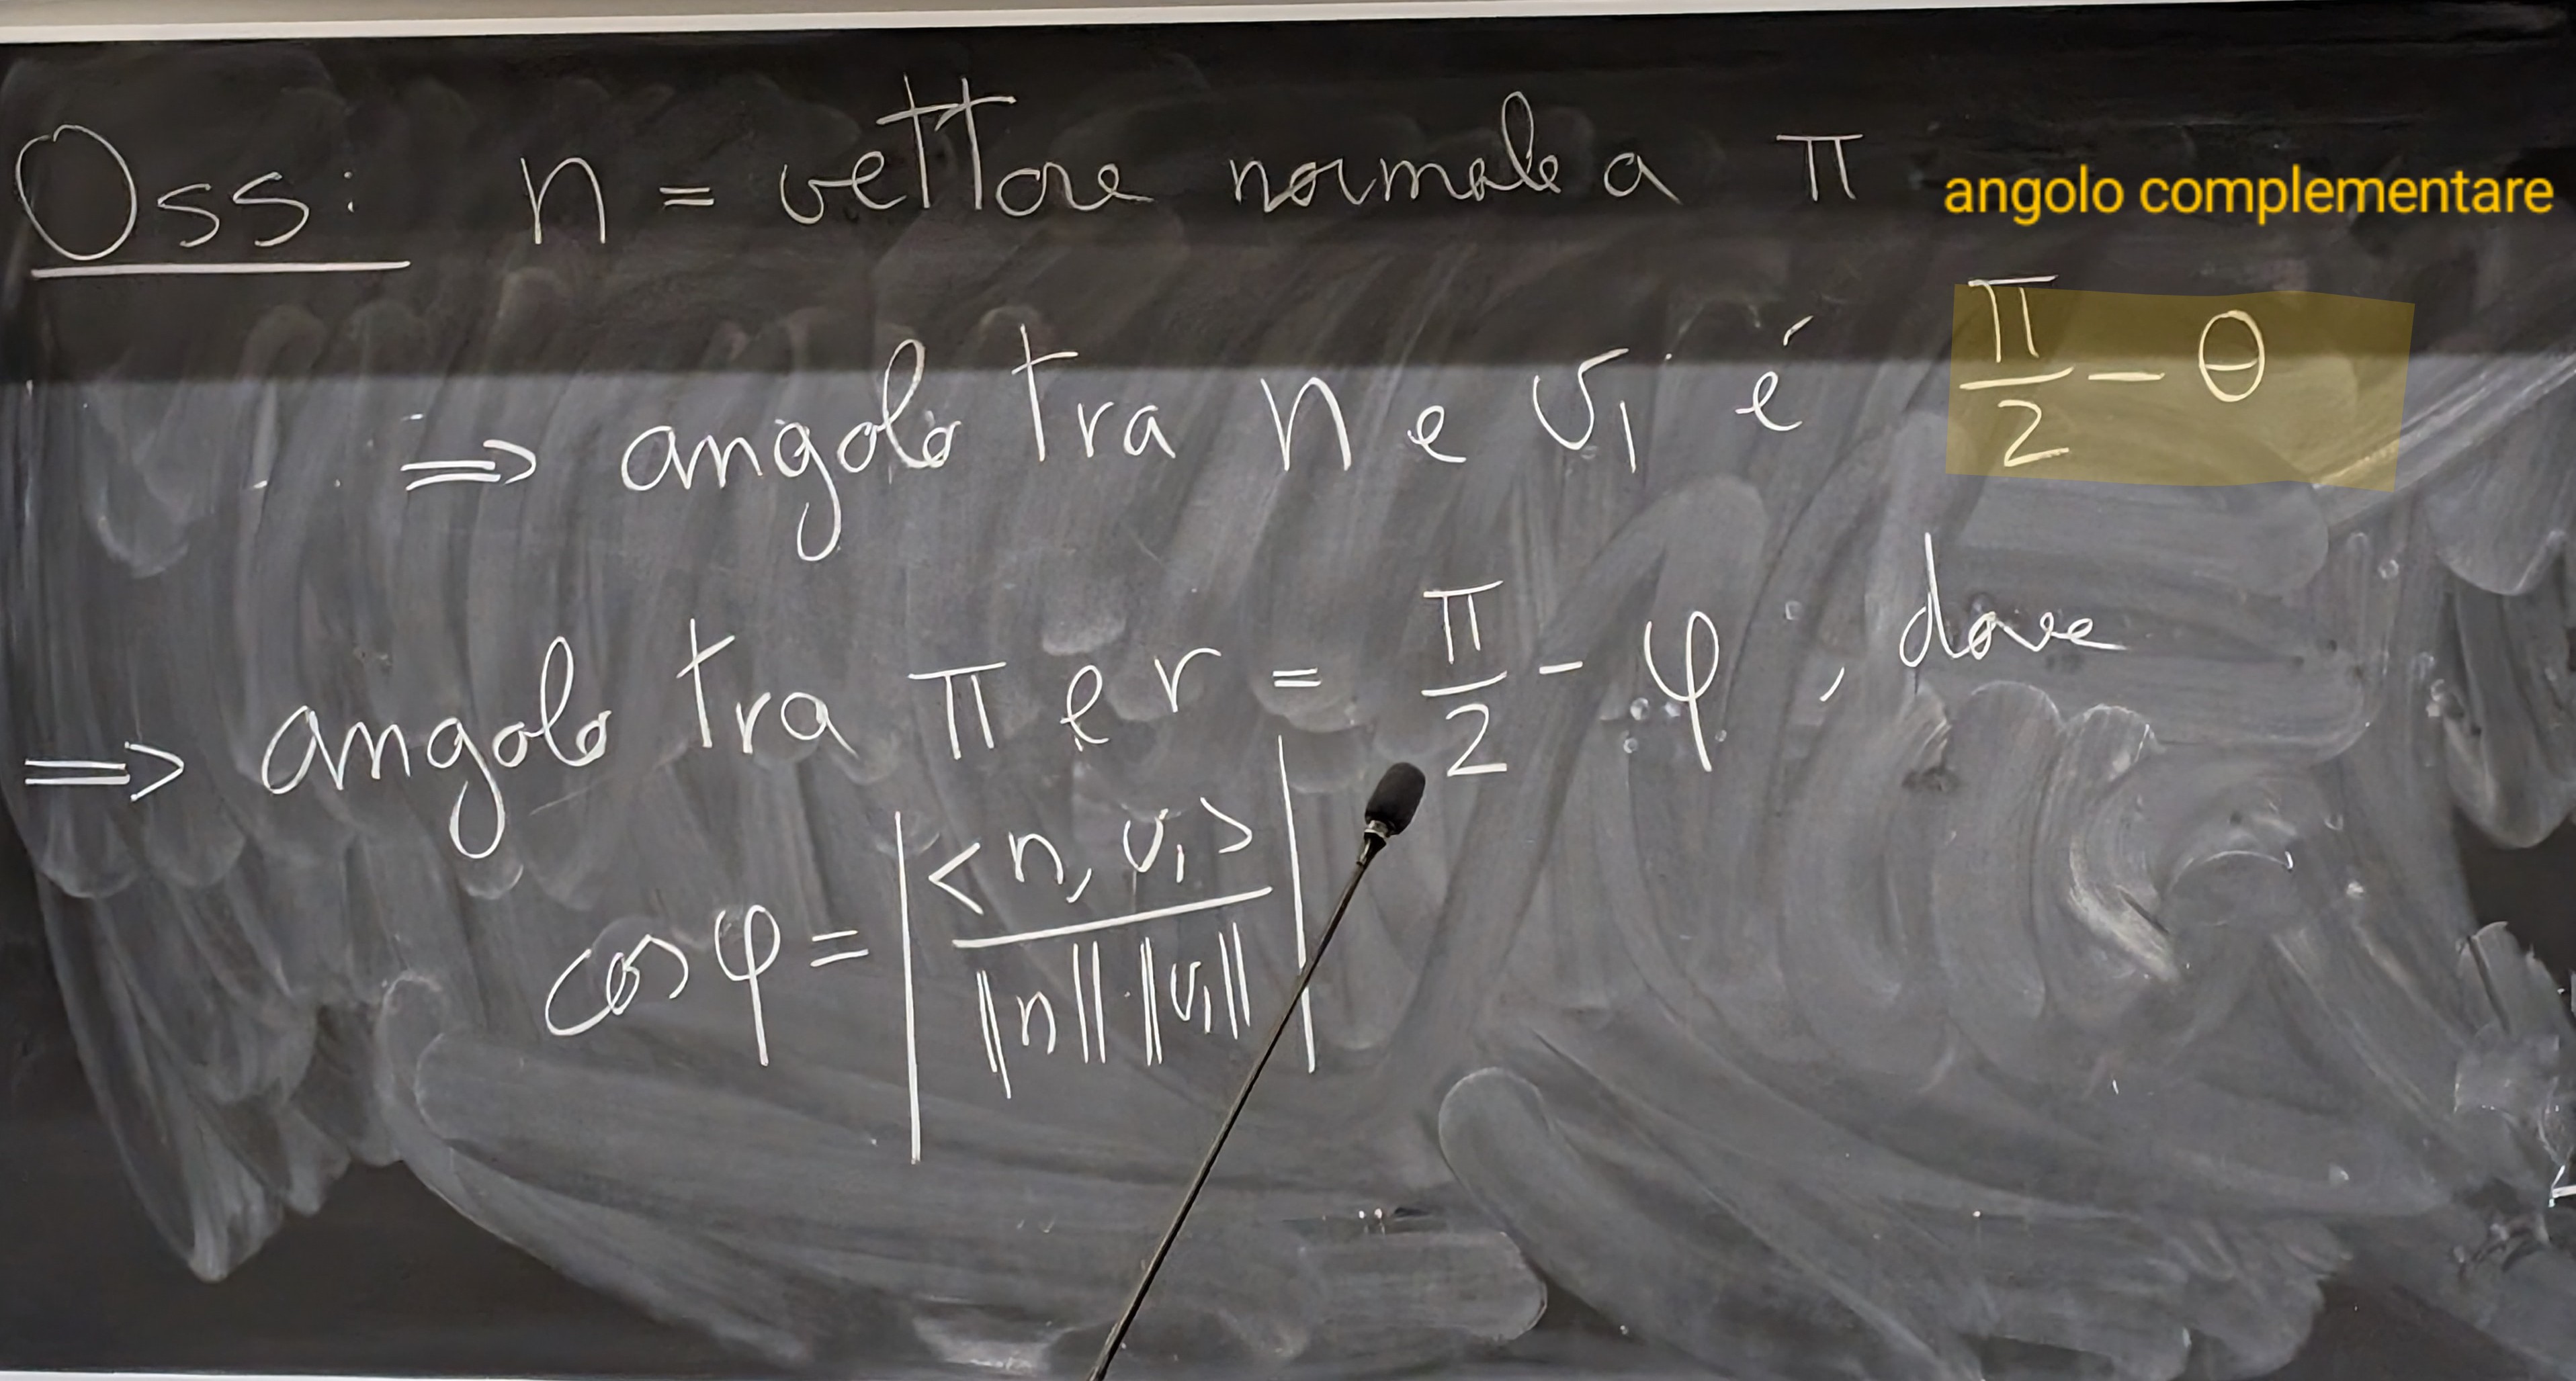 Oss: n = vettore normale a π angolo complementare
⇒ angolo tra n e v₁ é π/2 - θ
⇒ angolo tra π e r = π/2 - φ, dove
cos φ = | <n, v₁> / ‖n‖·‖v₁‖ |